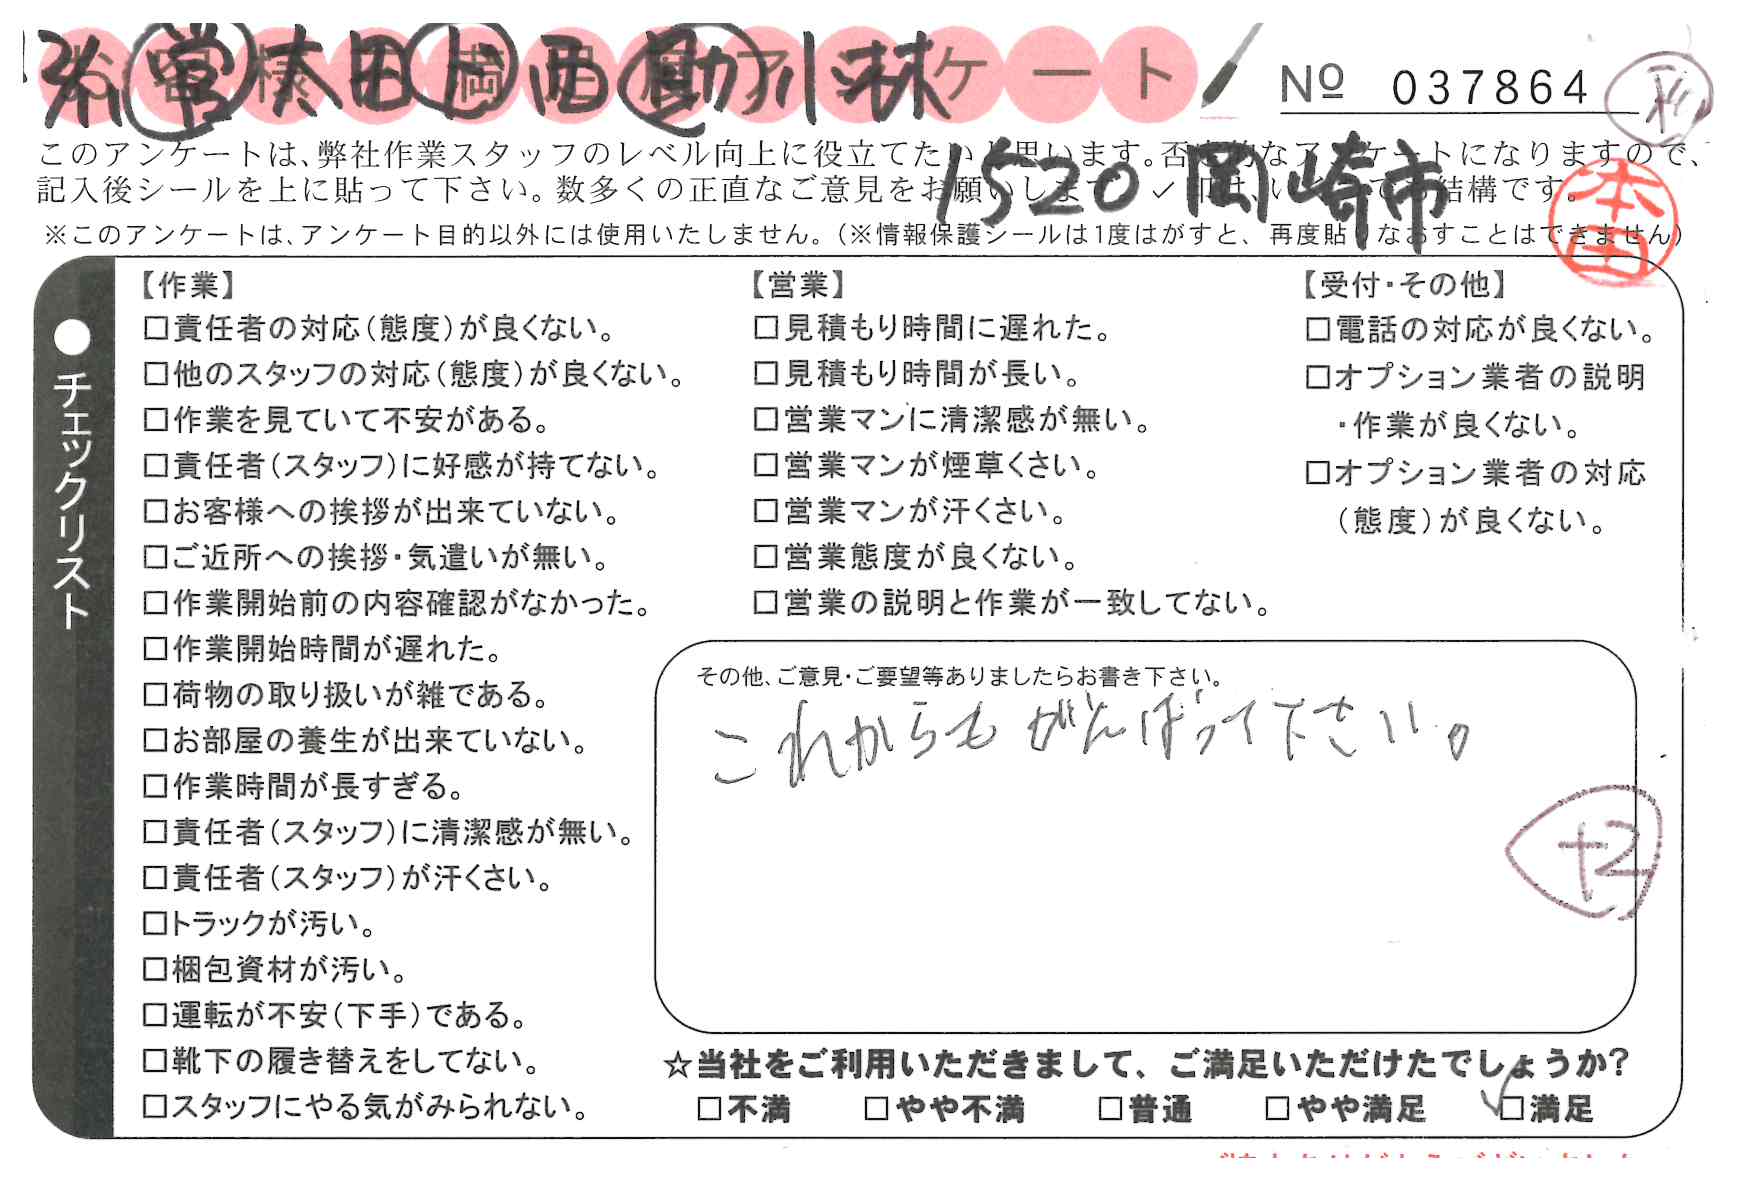 営 太田 ト 西 勘 川 林
お客様不満足度アンケート
№ 037864
このアンケートは、弊社作業スタッフのレベル向上に役立てたいと思います。否定的なアンケートになりますので、
記入後シールを上に貼って下さい。数多くの正直なご意見をお願いします。✓印は、いくつでも結構です。
1520 岡崎市
本田
※このアンケートは、アンケート目的以外には使用いたしません。(※情報保護シールは1度はがすと、再度貼りなおすことはできません)
●チェックリスト
【作業】
□責任者の対応(態度)が良くない。
□他のスタッフの対応(態度)が良くない。
□作業を見ていて不安がある。
□責任者(スタッフ)に好感が持てない。
□お客様への挨拶が出来ていない。
□ご近所への挨拶・気遣いが無い。
□作業開始前の内容確認がなかった。
□作業開始時間が遅れた。
□荷物の取り扱いが雑である。
□お部屋の養生が出来ていない。
□作業時間が長すぎる。
□責任者(スタッフ)に清潔感が無い。
□責任者(スタッフ)が汗くさい。
□トラックが汚い。
□梱包資材が汚い。
□運転が不安(下手)である。
□靴下の履き替えをしてない。
□スタッフにやる気がみられない。
【営業】
□見積もり時間に遅れた。
□見積もり時間が長い。
□営業マンに清潔感が無い。
□営業マンが煙草くさい。
□営業マンが汗くさい。
□営業態度が良くない。
□営業の説明と作業が一致してない。
【受付・その他】
□電話の対応が良くない。
□オプション業者の説明
・作業が良くない。
□オプション業者の対応
(態度)が良くない。
その他、ご意見・ご要望等ありましたらお書き下さい。
これからもがんばって下さい。
+2
☆当社をご利用いただきまして、ご満足いただけたでしょうか?
□不満 □やや不満 □普通 □やや満足 ✓□満足